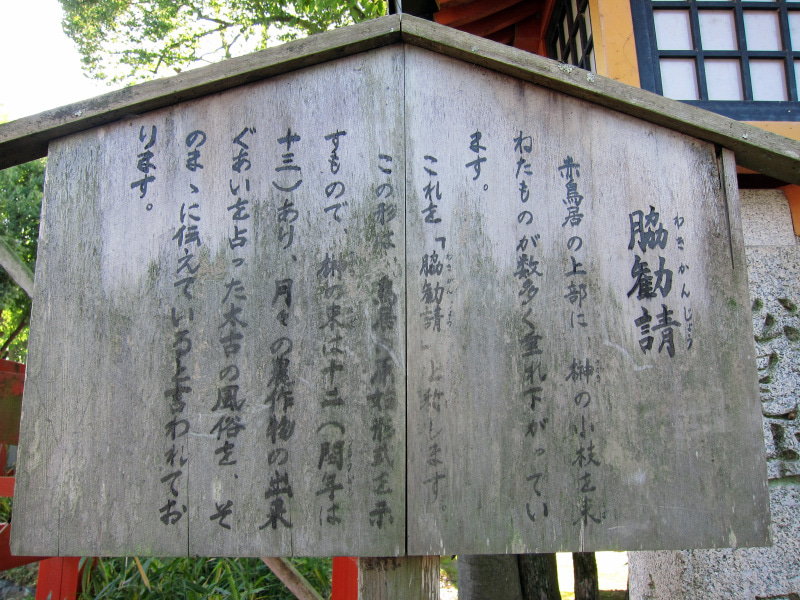 脇勧請
わきかんじょう
赤鳥居の上部に、榊の小枝を束
ねたものが数多く垂れ下がってい
ます。
これを「脇勧請」と称します。
この形は、鳥居の原始形式を示
すもので、榊の束は十二(閏年は
十三)あり、月々の農作物の出来
ぐあいを占った太古の風俗を、そ
のまゝに伝えていると言われてお
ります。